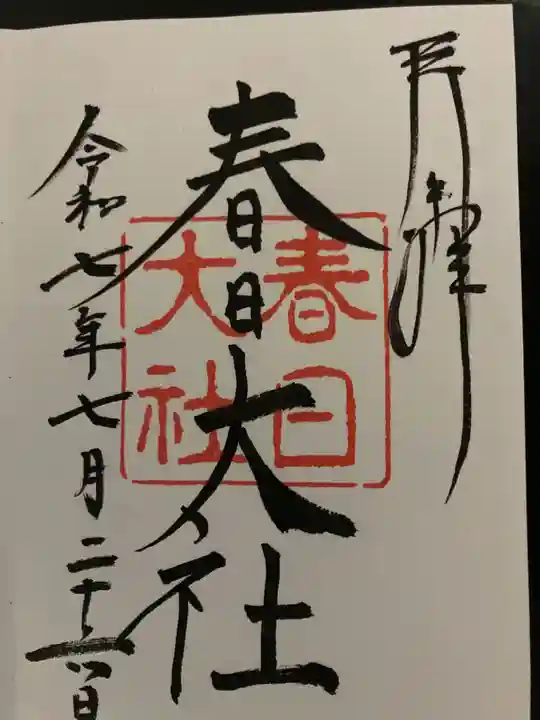 春日大社
春日
大社
令和七年七月二十六日